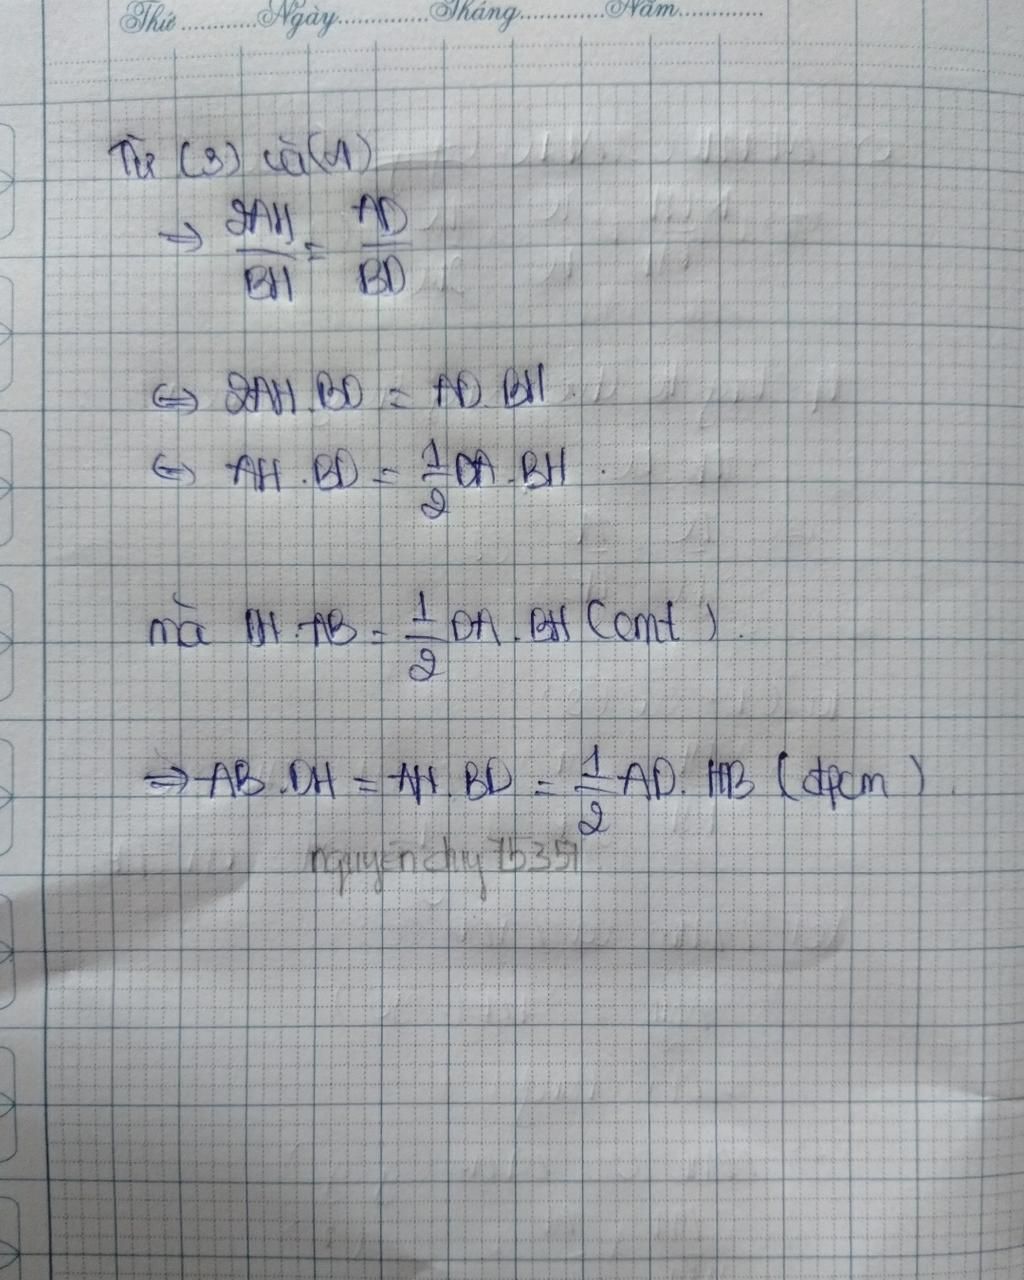 Thứ............Ngày............Tháng............Năm............
Từ (3) và (4)
⇒ 2AH/BH = AD/BD
⇔ 2AH.BD = AD.BH
⇔ AH.BD = 1/2 DA.BH.
mà DH.AB = 1/2 DA.BH (cmt).
⇒ AB.DH = AH.BD = 1/2 AD.HB (đpcm).